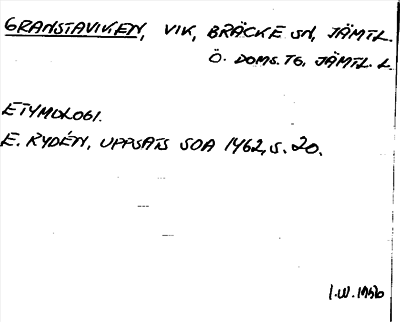 GRANSTAVIKEN, VIK, BRÄCKE SN, JÄMTL.
Ö. DOMS. TG, JÄMTL. L.
ETYMOLOGI.
E. RYDÉN, UPPSATS SOA 1462, S. 20.
I.W. 1956